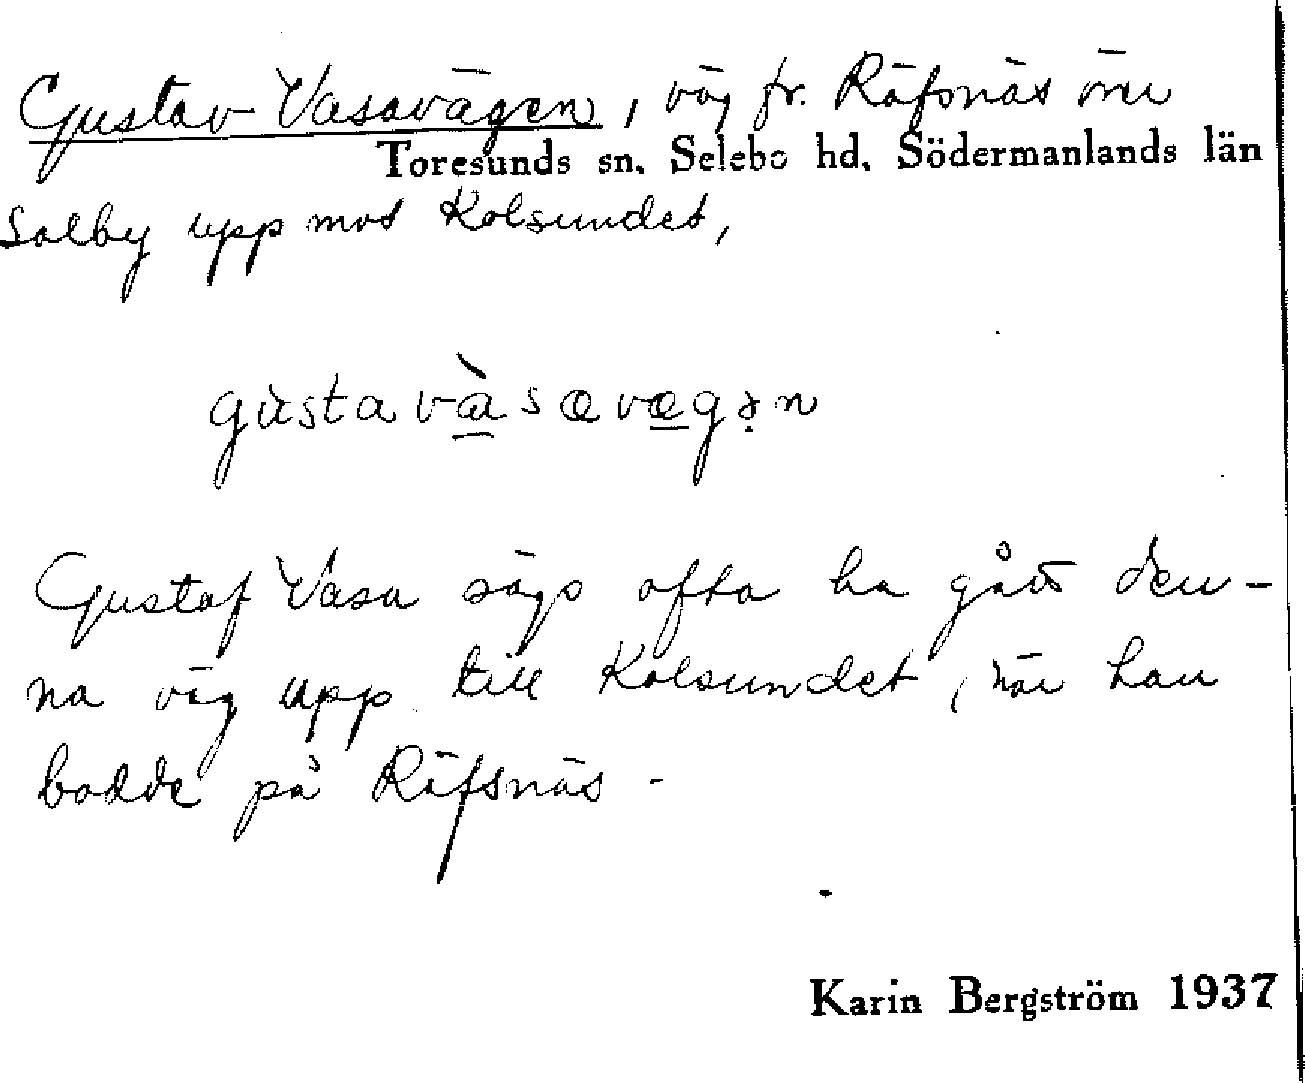 Gustav Vasavägen, väg fr. Räfsnäs över
Toresunds sn. Selebo hd. Södermanlands län
Solby upp mot Kolsundet,
gùstavàsavægən
Gustaf Vasa sägs ofta ha gått den-
na väg upp till Kolsundet, när han
bodde på Räfsnäs.
Karin Bergström 1937